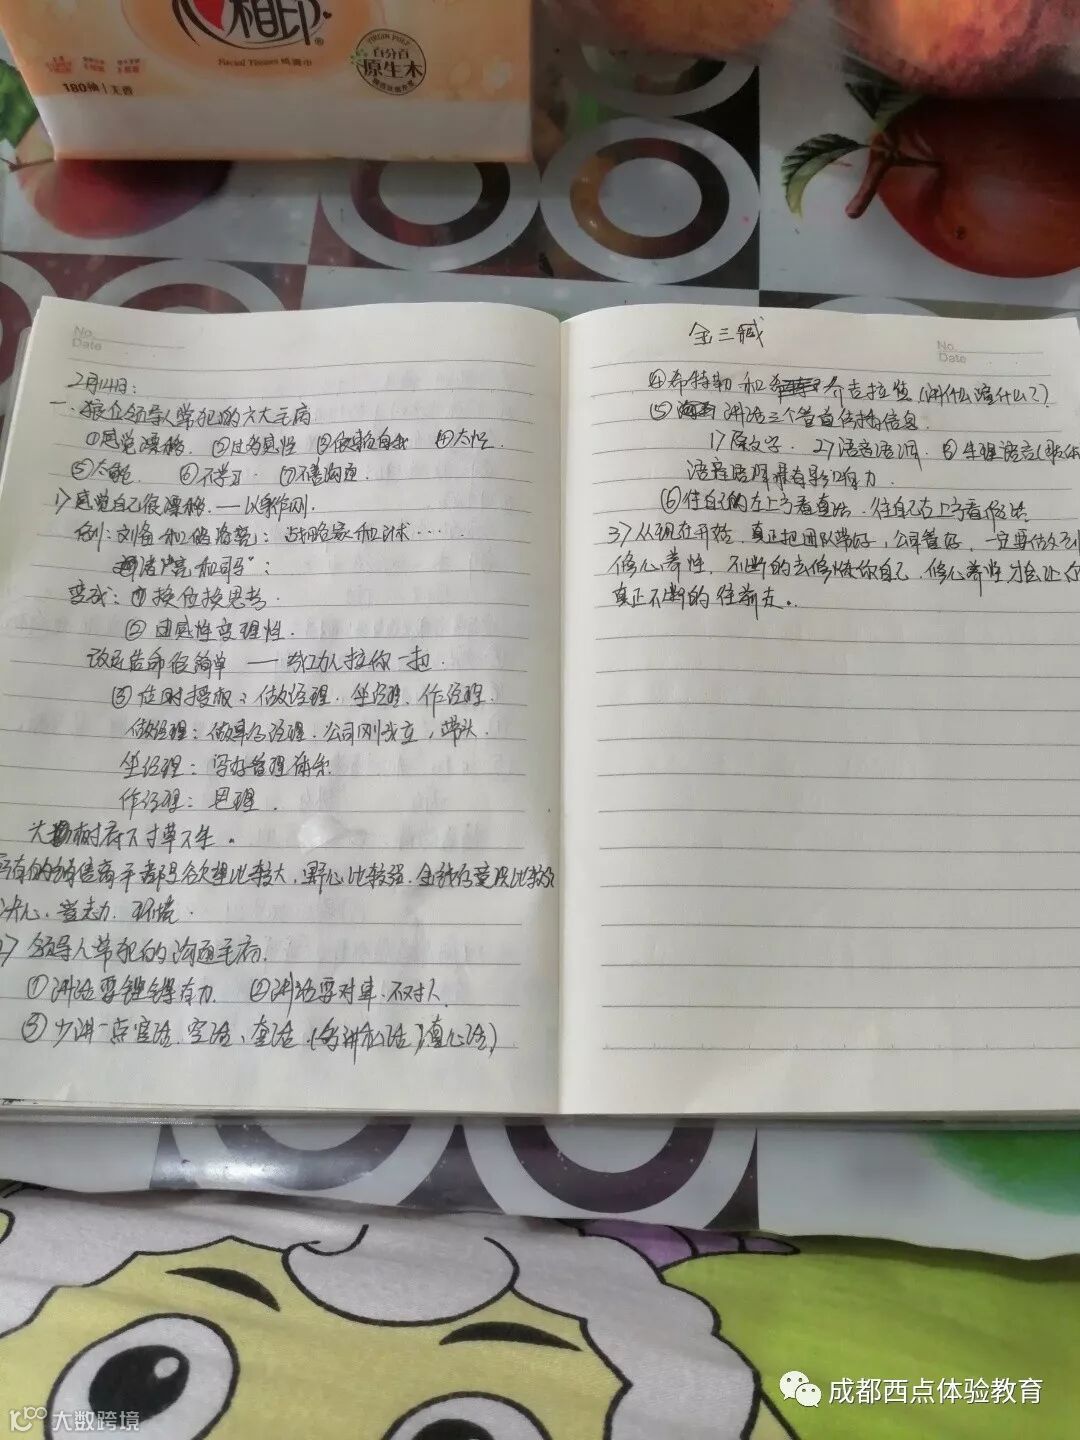 相印
Facial Tissues 纸面巾
180抽 | 无香
VIRGIN PULP
百分百
原生木
No.
Date
2月14日:
一、狼位领导人常犯的六大毛病
①感觉漂移 ②过多感性 ③依赖自我 ④太忙
⑤太 ⑥不学习 ⑦不善沟通
1) 感觉自己很漂移.——以柔作刚.
例:刘备和诸葛亮:战略家和
变成:①换位换思考.
②由感性变理性.
改变生命很简单 —— 当江力人拉你一把.
③位时授权:做经理.坐经理.作经理.
做经理:做事的经理.公司刚成立,带头.
坐经理:写好管理体系
作经理:思理.
大树底下寸草不生。
所有的销售高手都是欲望比较大,野心比较强.金钱的意识比较
决心.意志力.环境.
2) 领导人常犯的沟通毛病.
①讲话要铿锵有力. ②讲话要对事.不对人.
③少讲一点官话、空话、套话.(多讲私话)(真心话)
金三臧
No.
Date
④希特勒和 乔吉拉德(讲什么演什么?)
⑤讲话三个管道传播信息
1)原文字. 2)语音语调. ③生理语言(肢体
语言语调最有影响力
⑥往自己的左上方看真话.往自己右上方看假话.
3)从现在开始,真正把团队带好,公司管好,一定要做到
修心养性,不断的去修炼你自己.修心养性才会让你
真正不断的往前走。
成都西点体验教育
大数跨境